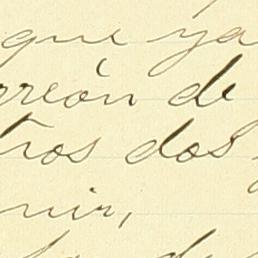 que ya
rreón de
tros dos
nir,